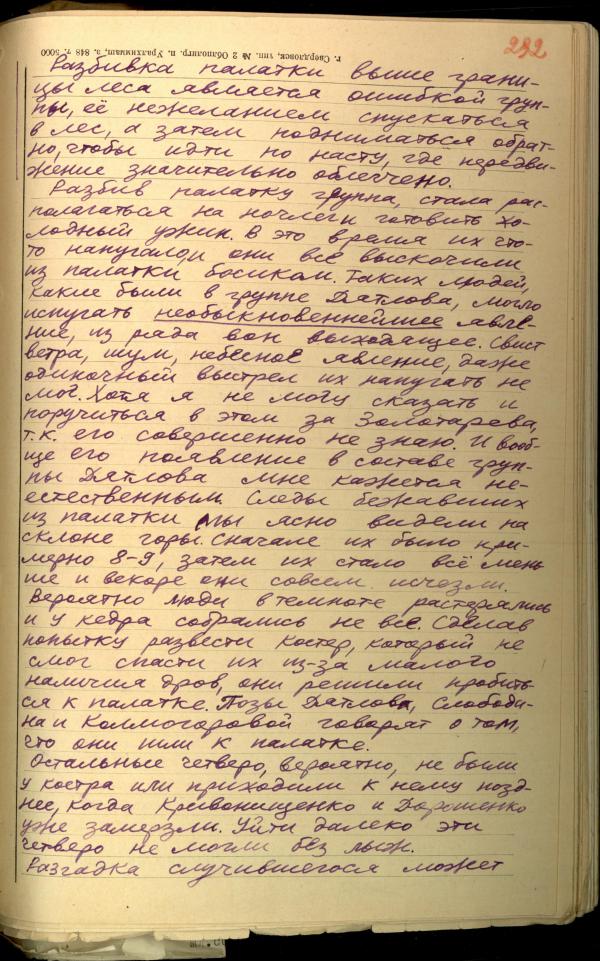 г. Свердловск, тип. № 2 Облполигр. п. Уралхиммаш, з. 848 т. 5000
292
Разбивка палатки выше грани-
цы леса является ошибкой груп-
пы, её нежеланием спускаться
в лес, а затем подниматься обрат-
но, чтобы идти по насту, где передви-
жение значительно облегчено.
Разбив палатку группа, стала рас-
полагаться на ночлег и готовить хо-
лодный ужин. В это время их что-
то напугало, и они все выскочили
из палатки босиком. Таких людей,
какие были в группе Дятлова, могло
испугать необыкновеннейшее явле-
ние, из ряда вон выходящее. Свист
ветра, шум, небесное явление, даже
одиночный выстрел их напугать не
мог. Хотя я не могу сказать и
поручиться в этом за Золотарева,
т.к. его совершенно не знаю. И вооб-
ще его появление в составе груп-
пы Дятлова мне кажется не-
естественным. Следы бежавших
из палатки мы ясно видели на
склоне горы. Сначале их было при-
мерно 8-9, затем их стало всё мень
ше и вскоре они совсем исчезли.
Вероятно люди в темноте растерялись
и у кедра собрались не все. Сделав
попытку развести костер, который не
смог спасти их из-за малого
наличия дров, они решили пробить-
ся к палатке. Позы Дятлова, Слободи-
на и Колмогоровой говорят о том,
что они шли к палатке.
Остальные четверо, вероятно, не были
у костра или приходили к нему позд-
нее, когда Кривонищенко и Дорошенко
уже замерзли. Уйти далеко эти
четверо не могли без лыж.
Разгадка случившегося может